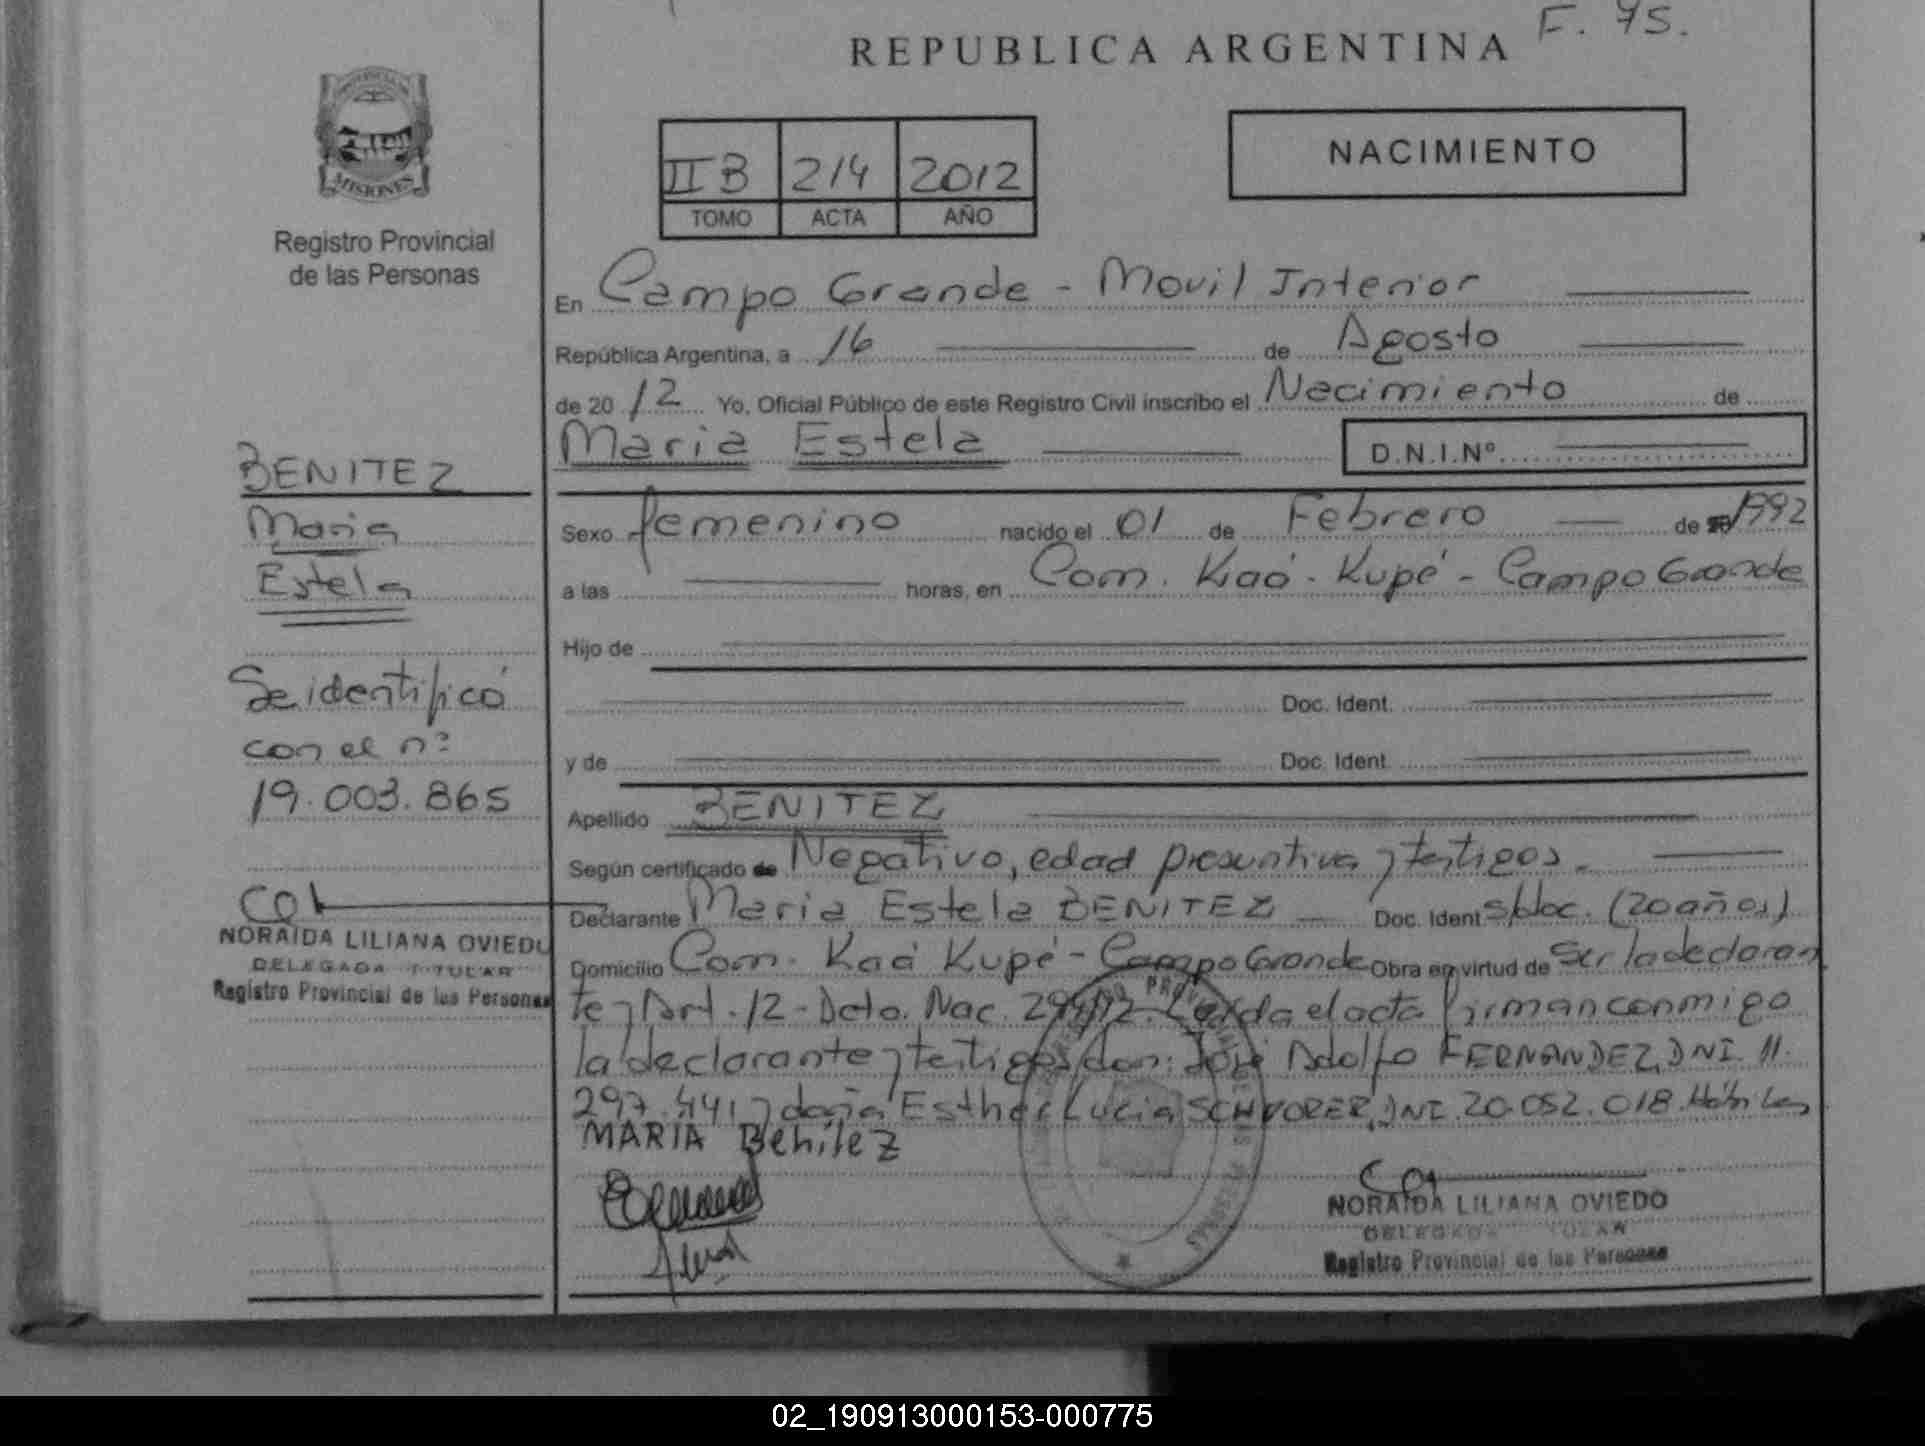 F. 75.
REPUBLICA ARGENTINA
NACIMIENTO
IIB 214 2012
TOMO ACTA AÑO
MISIONES
Registro Provincial
de las Personas
En Campo Grande - Movil Interior
República Argentina, a 16 de Agosto
de 2012 Yo, Oficial Público de este Registro Civil inscribo el Nacimiento de
Maria Estela D.N.I.Nº
BENITEZ
Maria
Estela
Se identificó
con el nº
19.003.865
NORAIDA LILIANA OVIEDO
DELEGADA TITULAR
Registro Provincial de las Personas
Sexo femenino nacido el 01 de Febrero de 1992
a las horas, en Com. Kaá - Kupé - Campo Grande
Hijo de
Doc. Ident.
y de Doc. Ident.
Apellido BENITEZ
Según certificado de Negativo, edad presuntiva y testigos.
Declarante Maria Estela BENITEZ Doc. Ident s/doc. (20 años)
Domicilio Com. Kaá Kupé - Campo Grande Obra en virtud de Ser la declaran
te y Art. 12 - Dcto. Nac. Leída el acta firman conmigo
la declarante y testigos don: José Adolfo FERNANDEZ, DNI. 11.
297.441 y doña Esther Lucia DNI. 20.052.018. Hábiles
MARIA Benitez
NORAIDA LILIANA OVIEDO
DELEGADA TITULAR
Registro Provincial de las Personas
02_190913000153-000775